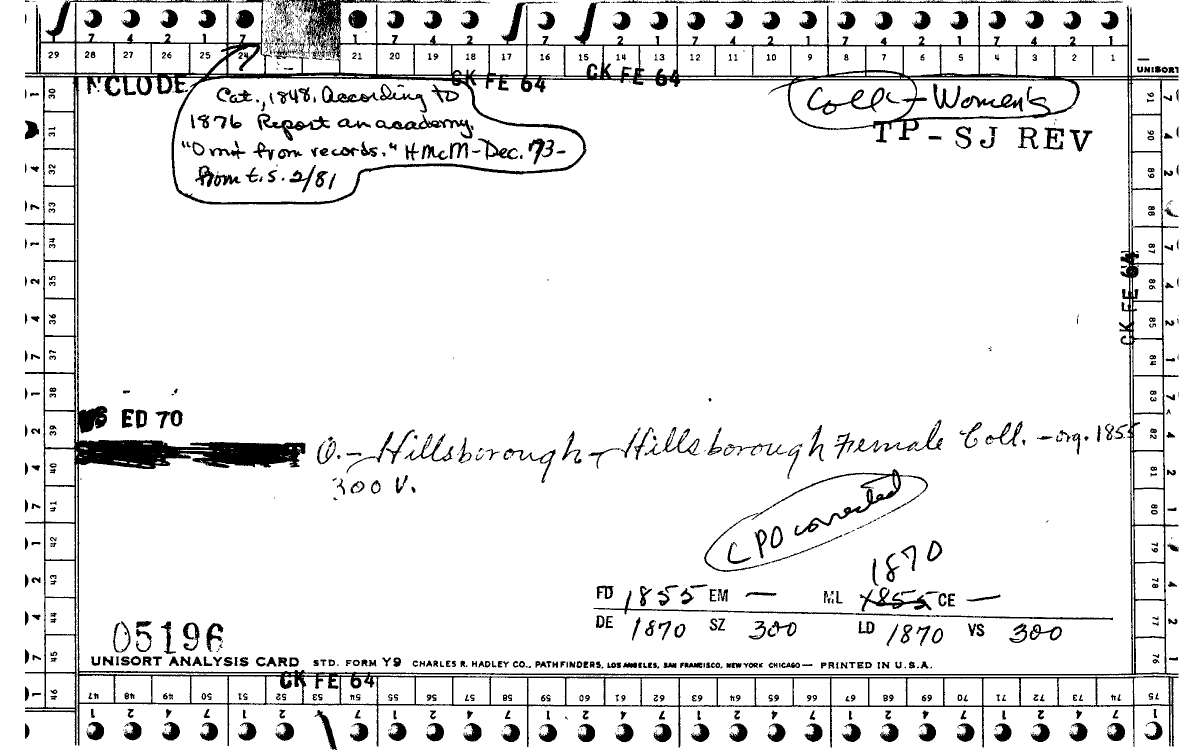 7 4 2 1 7 1 7 4 2 1 7 4 2 1 7 4 2 1 7 4 2 1
29 28 27 26 25 24 21 20 19 18 17 16 15 14 13 12 11 10 9 8 7 6 5 4 3 2 1
CK FE 64
CK FE 64
UNISORT
INCLUDE
Cat., 1848. According to
1876 Report an academy.
"Omit from records." HMcM-Dec. '73-
from t.s. 2/81
Coll. - Women's
TP-SJ REV
CK FE 64
ED 70
O. - Hillsborough - Hillsborough Female Coll. - org. 1855
300 V.
LPO corrected
1870
FD 1855 EM — ML 1855 CE —
DE 1870 SZ 300 LD 1870 VS 300
05196
UNISORT ANALYSIS CARD STD. FORM Y9 CHARLES R. HADLEY CO., PATHFINDERS, LOS ANGELES, SAN FRANCISCO, NEW YORK CHICAGO — PRINTED IN U.S.A.
CK FE 64
30 31 32 33 34 35 36 37 38 39 40 41 42 43 44 45 46
91 90 89 88 87 86 85 84 83 82 81 80 79 78 77 76
47 48 49 50 51 52 53 54 55 56 57 58 59 60 61 62 63 64 65 66 67 68 69 70 71 72 73 74 75